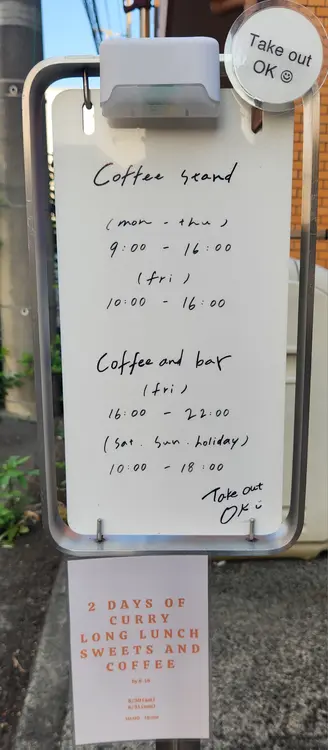 Take out
OK ☺
Coffee stand
(mon - thu)
9:00 - 16:00
(fri)
10:00 - 16:00
Coffee and bar
(fri)
16:00 - 22:00
(Sat. Sun. holiday)
10:00 - 18:00
Take out
OK
2 DAYS OF
CURRY
LONG LUNCH
SWEETS AND
COFFEE